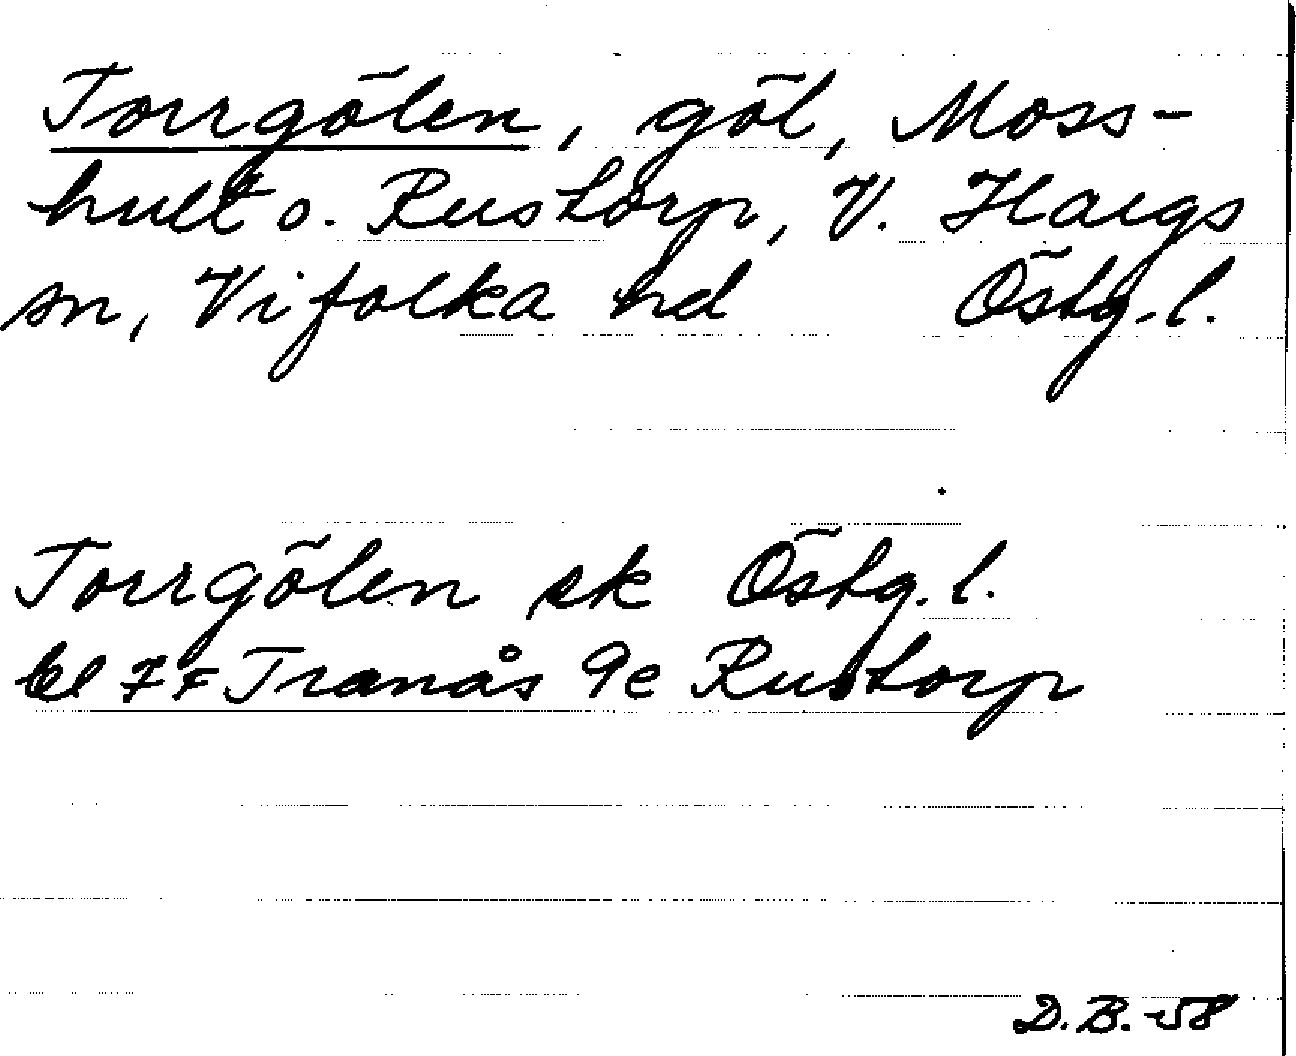 Torrgölen, göl, Moss-
hult o. Rustorp, V. Hargs
sn, Vifolka hd Östg.l.
Torrgölen ek Östg.l.
bl 7F Tranås 9e Rustorp
D.B. -58